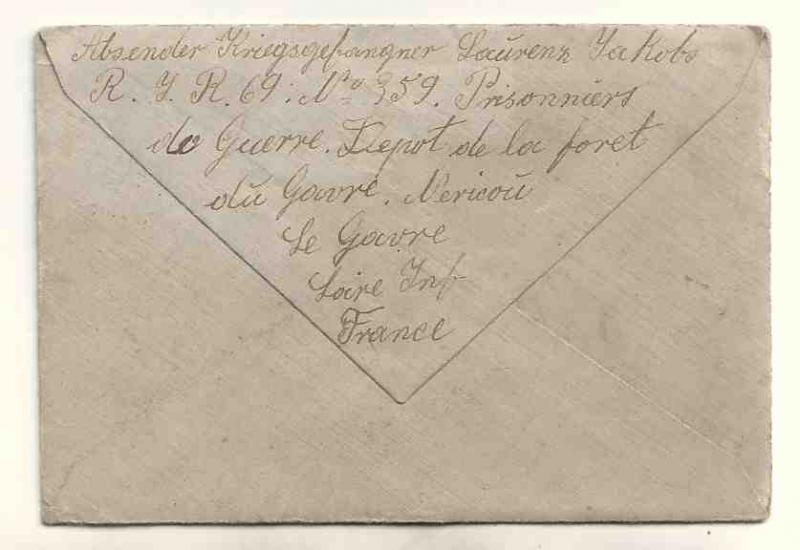 Absender Kriegsgefangner Laurenz Jakobs
R. I. R. 69. No 359. Prisonniers
de Guerre. Depot de la foret
du Gavre. Nericou
Le Gavre
Loire Inf
France